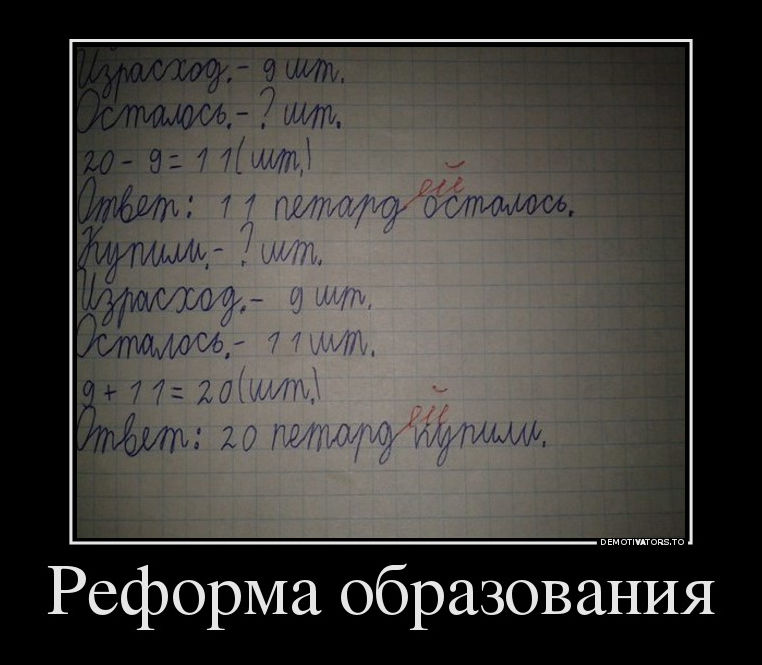 Израсход.- 9 шт.
Осталось.- ? шт.
20 - 9 = 11(шт.)
Ответ: 11 петардей осталось.
Купили.- ? шт.
Израсход.- 9 шт.
Осталось.- 11 шт.
9 + 11 = 20(шт.)
Ответ: 20 петардей купили.
DEMOTIVATORS.TO
Реформа образования